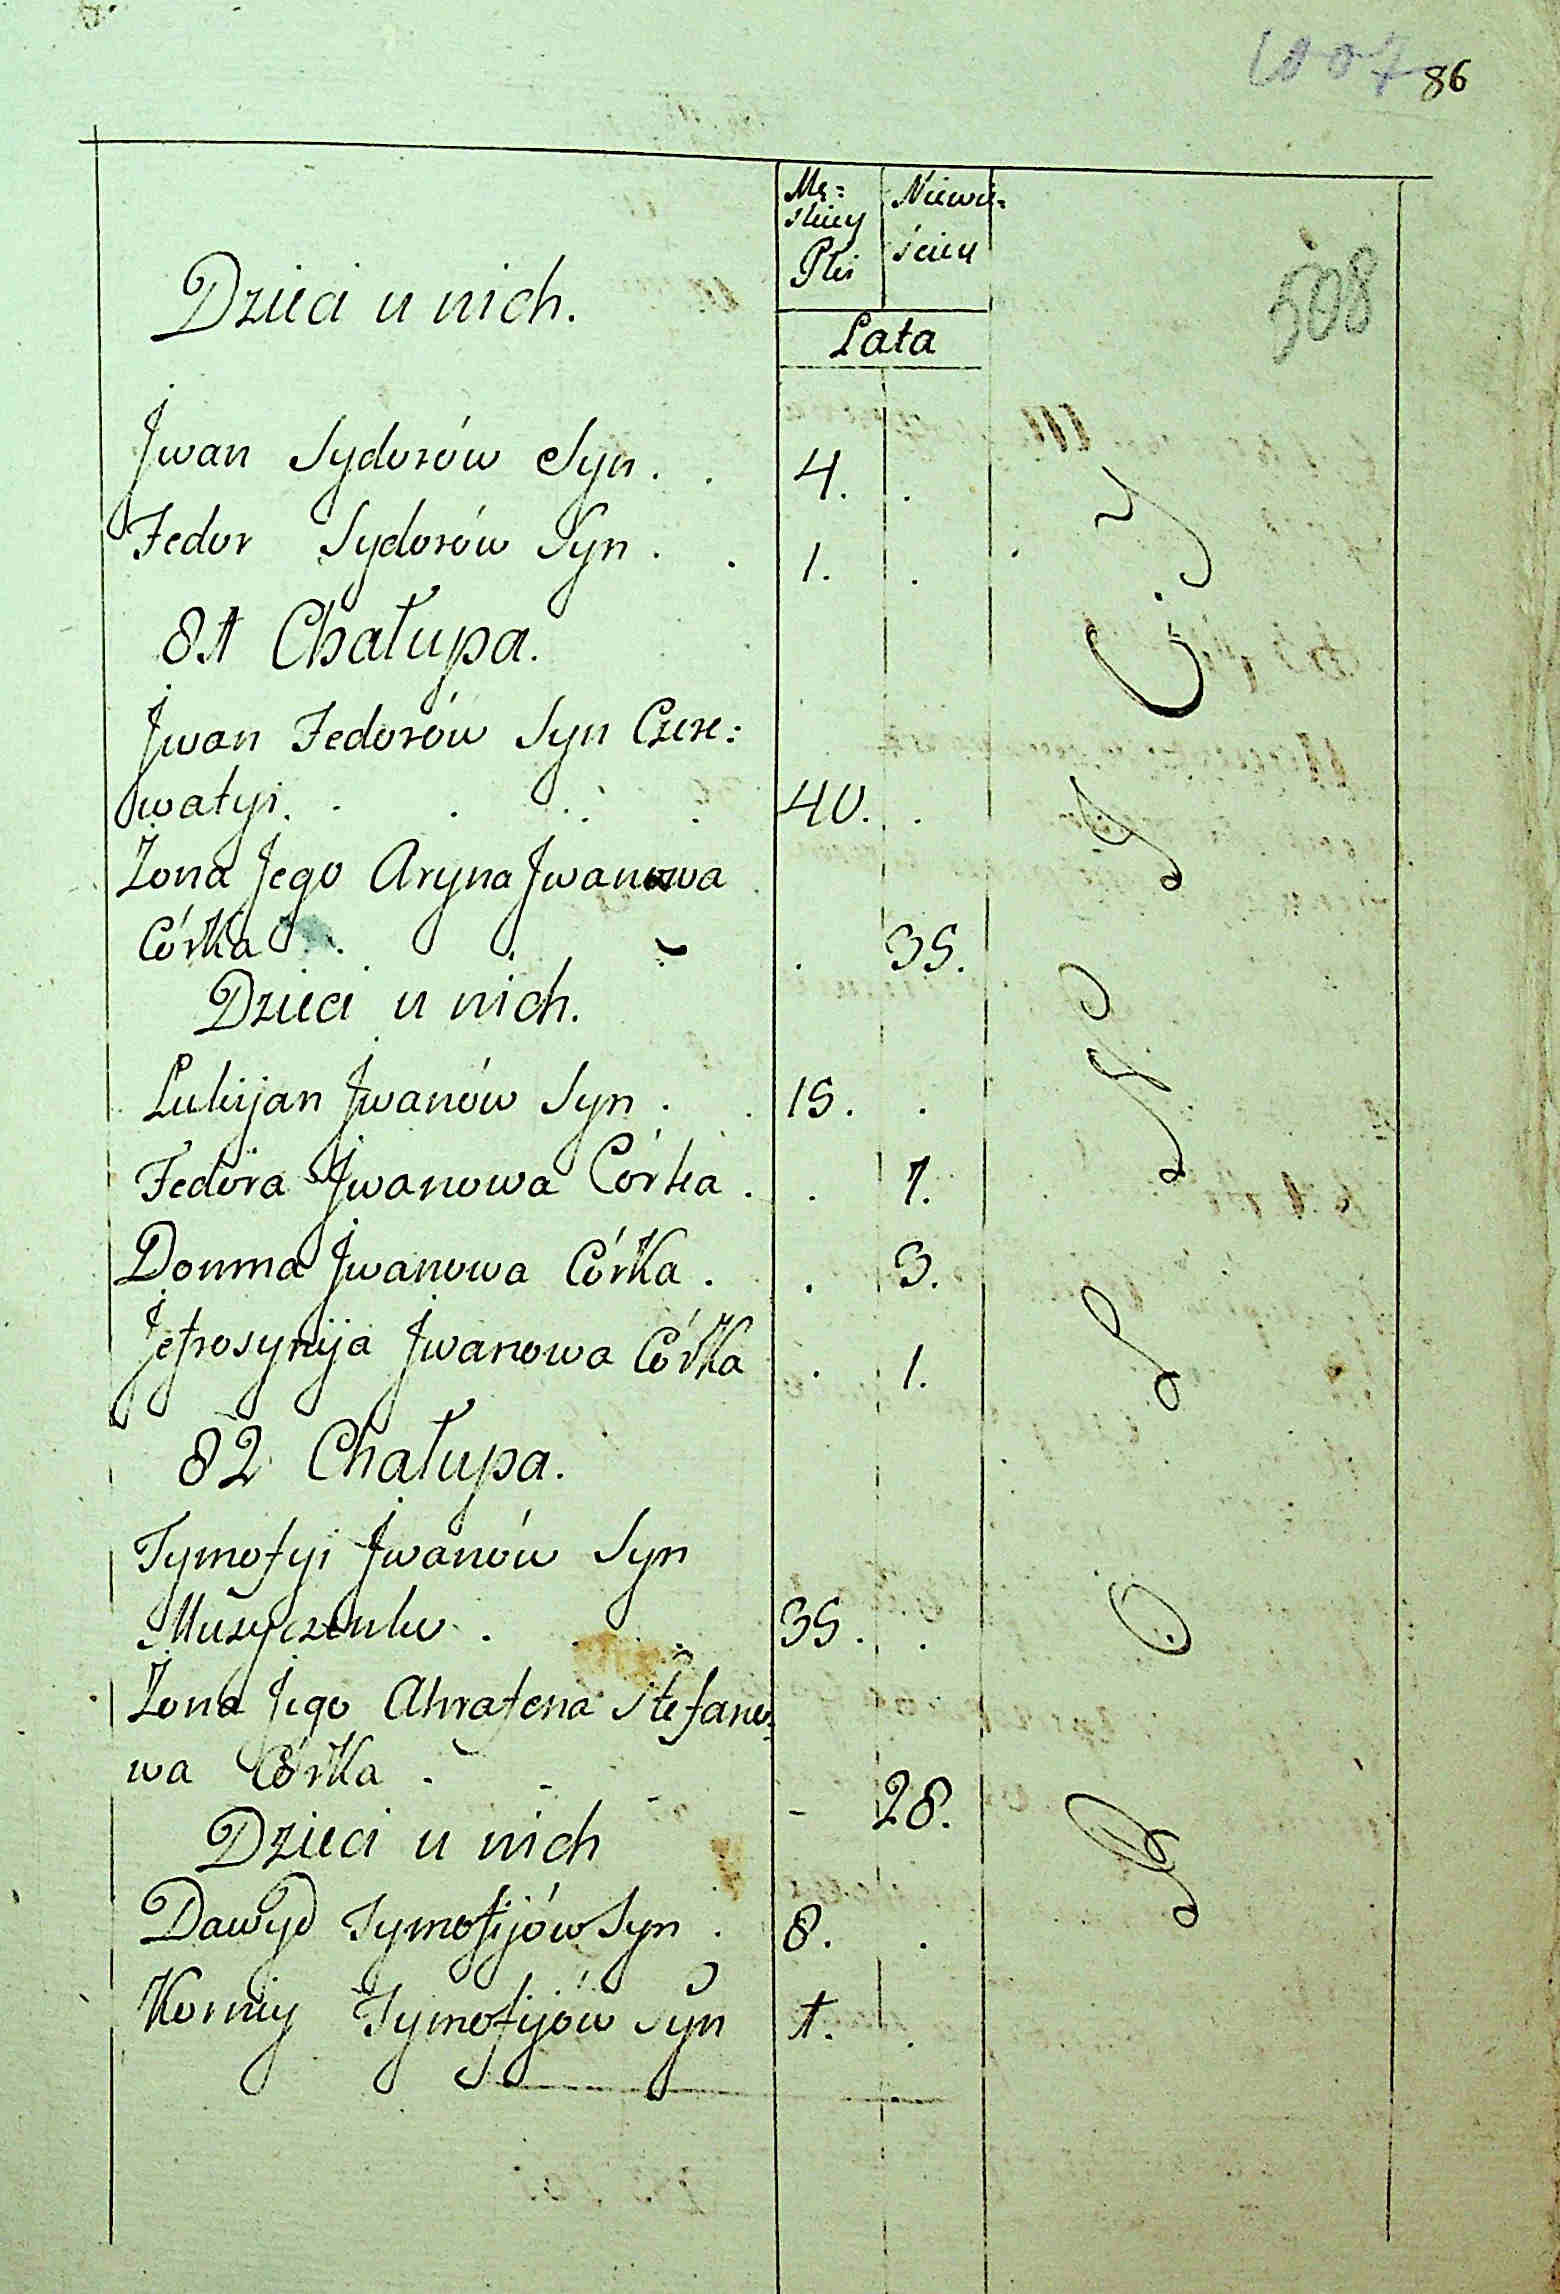 1007 86
Mę=
skiey
Płci
Niewie=
ściey
508
Dzieci u nich.
Lata
Jwan Sydorów Syn . . 4. .
Fedor Sydorów Syn . . 1. .
81 Chałupa.
Jwan Fedorów Syn Czere=
watyi. . . . . 40. .
Żona Jego Aryna Jwanowa
Córka . . . 35.
Dzieci u nich.
Lukijan Jwanów Syn . . 15. .
Fedora Jwanowa Córka . . 7.
Domna Jwanowa Córka . . 3.
Jefrosynija Jwanowa Córka . 1.
82 Chałupa.
Tymofyi Jwanów Syn
Muzyczenko . . . 35. .
Żona Jego Ahrafena Stefano=
wa Córka . - - - 28.
Dzieci u nich
Dawyd Tymofijów Syn . 8. .
Korniy Tymofijów Syn 1. .